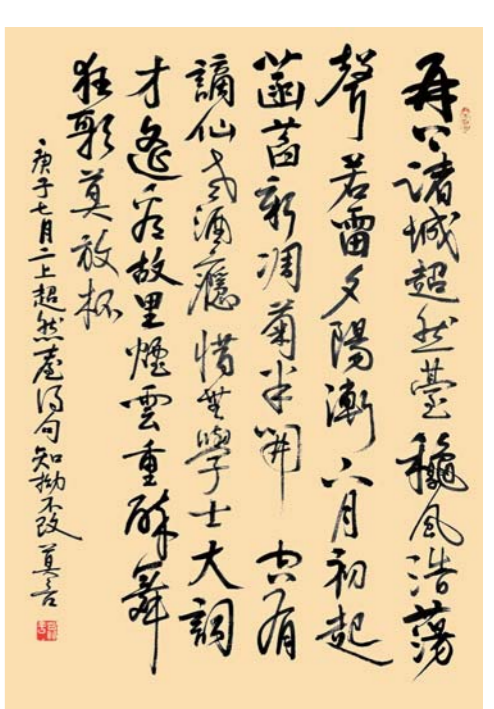 再上諸城超然臺穐風浩蕩
聲若雷夕陽漸下月初起
菡萏新凋菊半開 空有
謫仙老酒癮惜無學士大詞
才遙看故里煙雲重醉舞
狂歌莫放杯
庚子七月二上超然臺得句知拗不改 莫言